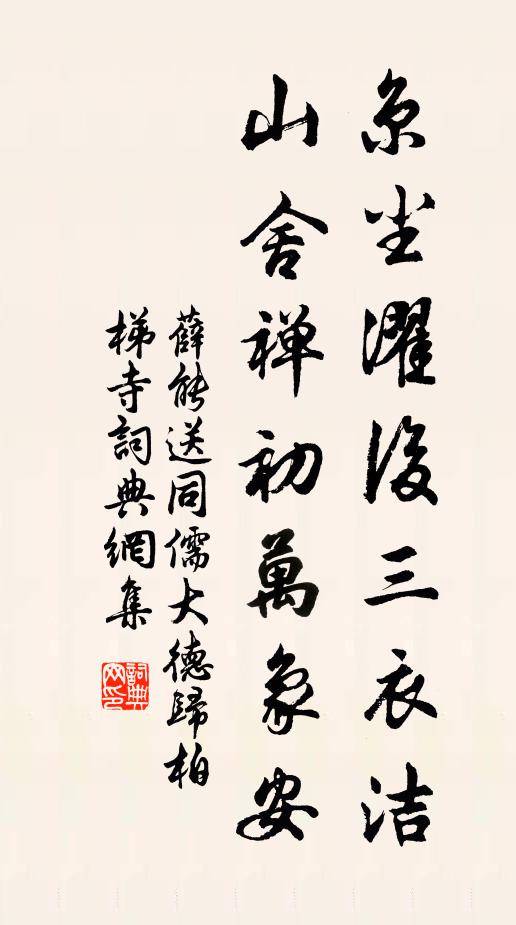 京尘濯後三衣洁
山舍禅初萬象安
薛能送同儒大德歸柏
梯寺詞典網集
詞典网印